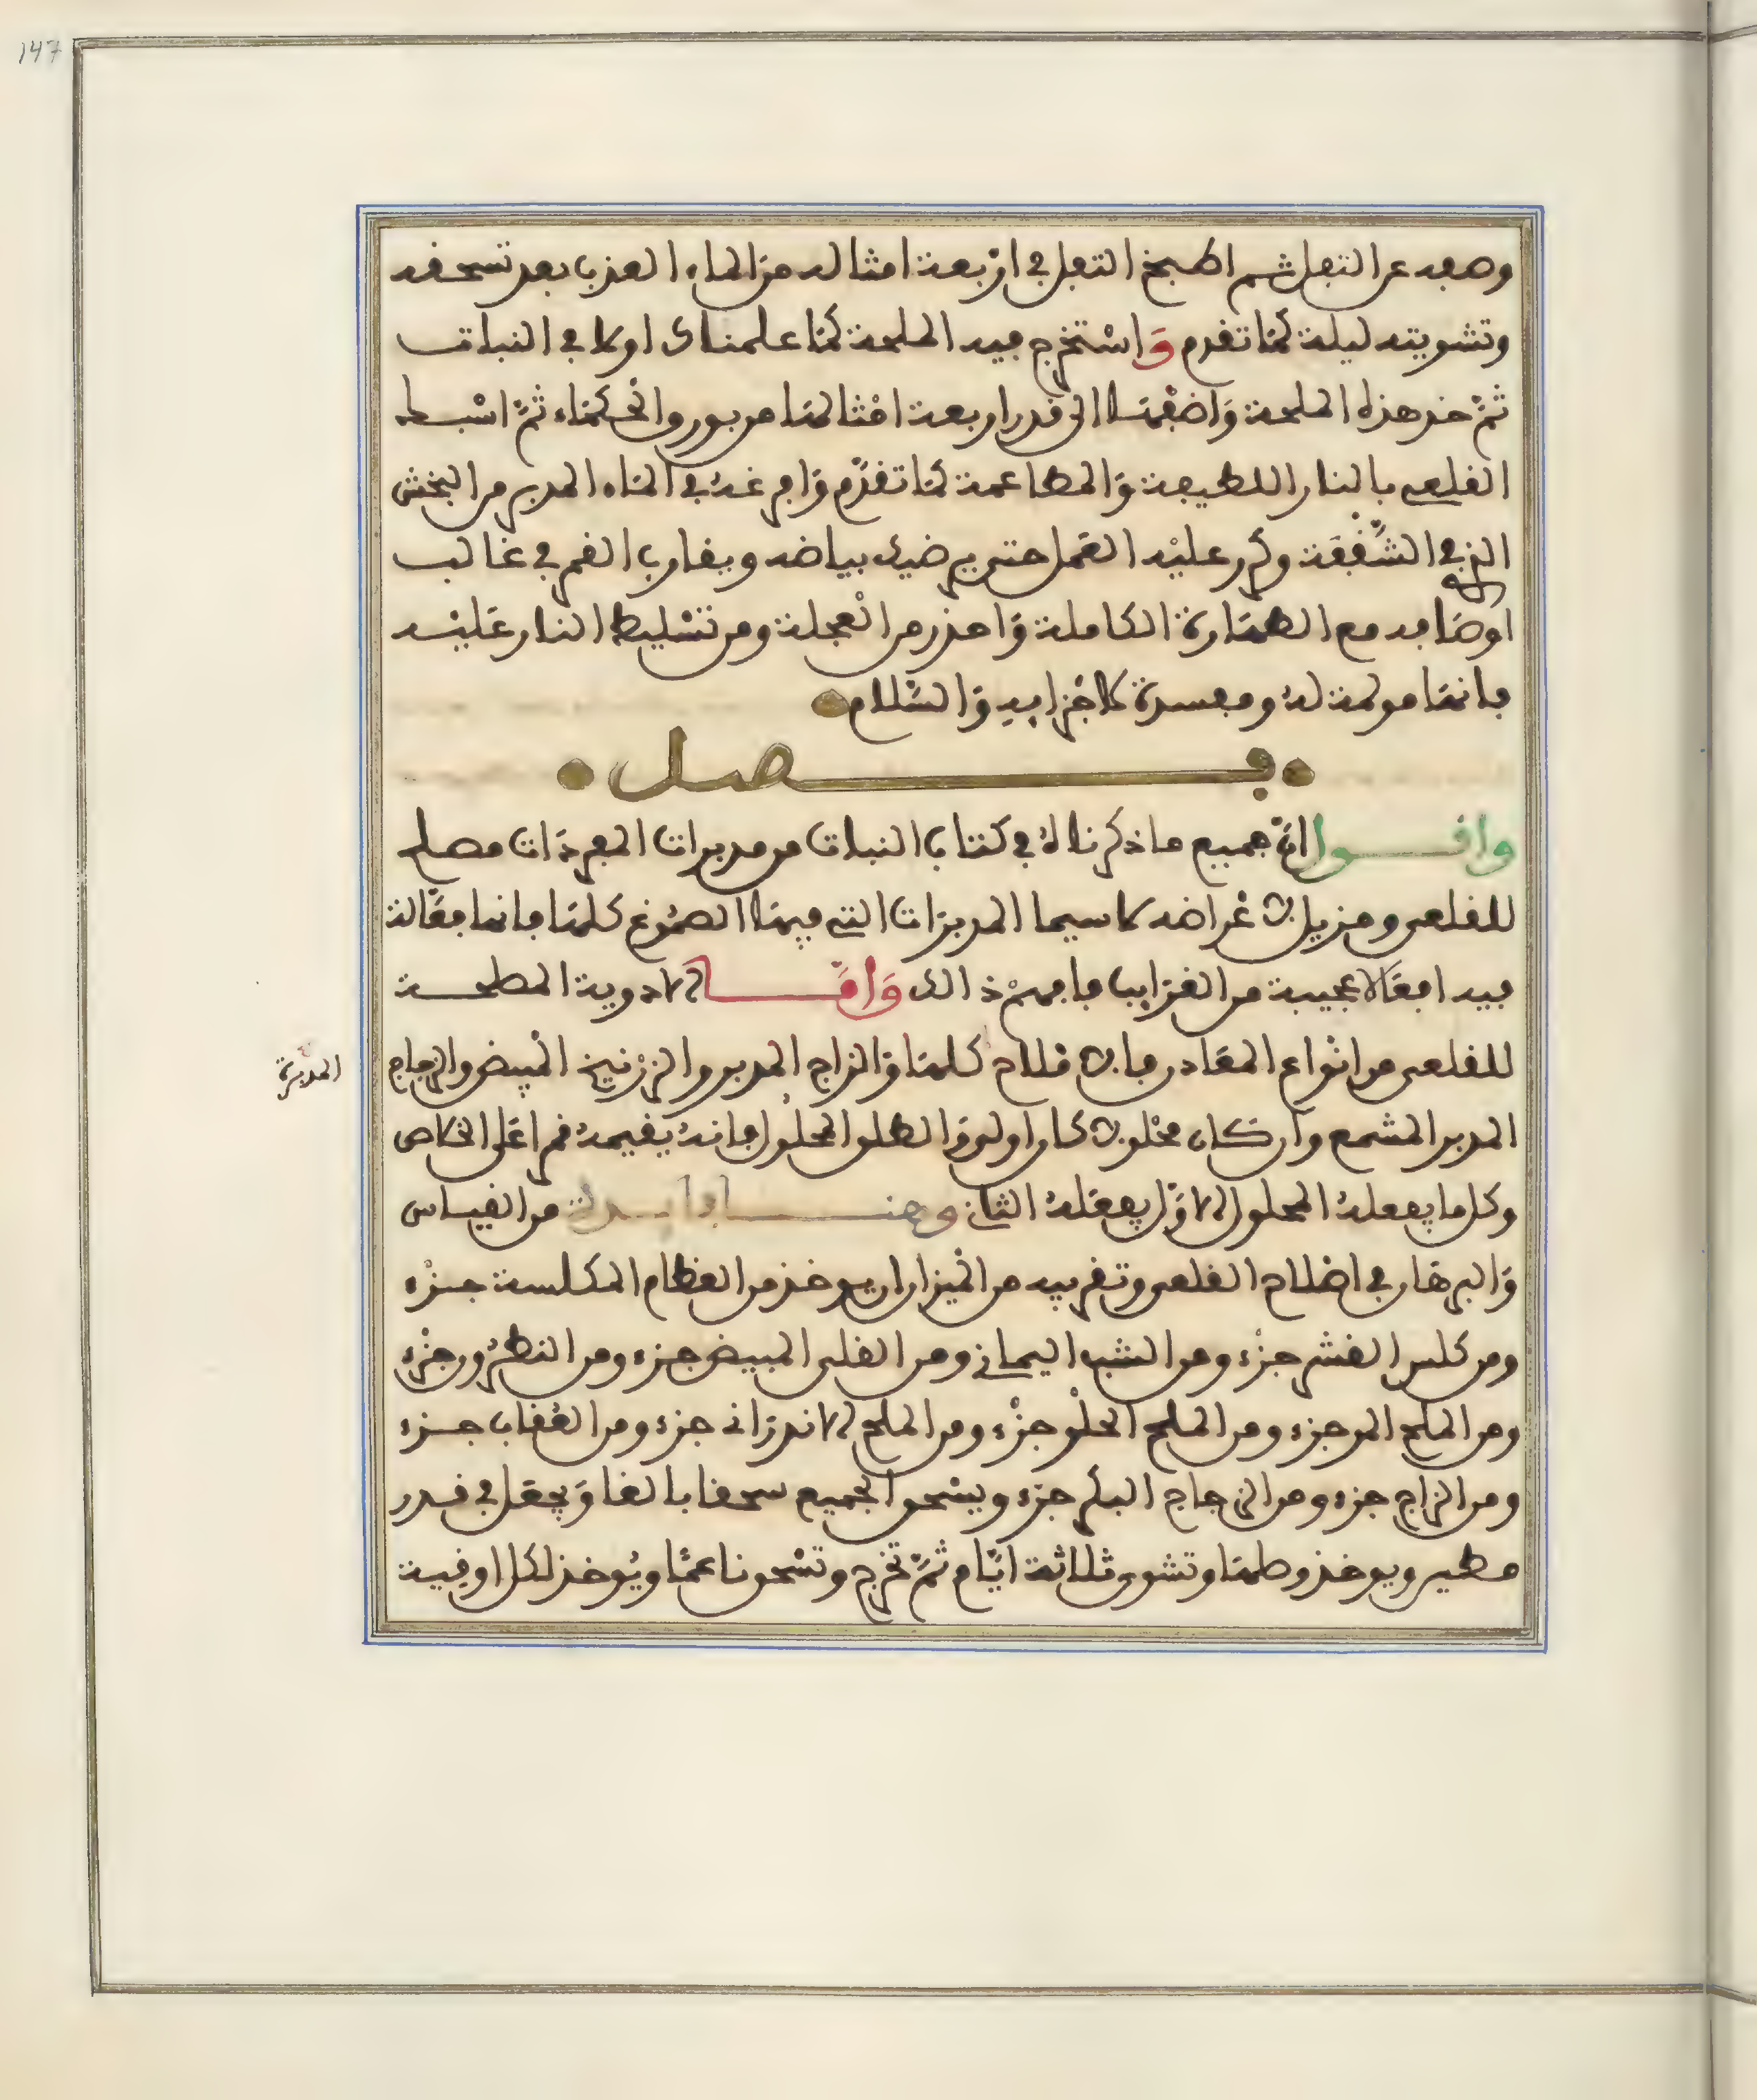 147
وصعده عن الثفل ثم اطبخ الثفل في أرْبعة امثاله من الماء العذب بعد تسحقه
وتشويته ليلة كمَا تقدم وَاسْتخرج فيه الملحة كمَا علمناك اولا في النبات
ثمّ خذ هذه الملحة وَاضفهَا الى قدر اربعة امْثالهَا من بورق الحكمَاء ثمَّ اسْبك
القلعي بالنار اللطيفة وَالمطاعمة كمَا تقدّم وَافرغهُ في المَاء المدبر من البخش
الذي في الشّققَة وكرر عليْه العَمل حتى يرضيك بياضه ويقارب القمر في غالب
اوصَافه مع الطهَارة الكاملة وَاحذر من الْعجلة ومن تسْليط النار عَليْه
فانهَا مولهة لهُ ومفسدة لاجْزايهِ وَالسّلام
فصل
واقول انّ جميع ما ذكرناهُ في كتاب النبات من مدبرات المفردَات مصلح
للقلعي ومزيل لاعْراضه لا سيما المدبرَات التي فيهَا الصمُوغ كلهَا فانها فعَالة
فيه افعَالا عجيبة من الغرَايب فافهمْ ذالك وَامَّا الادوية المصلحة
للقلعي من انْواع المعَادن فالاملاح كلهَا وَالزاج المدبر والزرْنيخ الْمبيض والزجاج
المدبرة
المدبر المشمع وان كان محْلولا كان اولى وَالطلق المحلول فانهُ يقيمهُ قمرا عَلى الخلاص
وكل ما يفعلهُ المحلول الاوَّل يفعَلهُ الثاني وهنا فايدة من القياس
وَالبرهَان في اصْلاح القلعي وتقريبه من الْميزان ان يوخذ من العظام المكلسة جزْء
ومن كلس القشر جزْء ومن الشب اليماني ومن القلى المبيض جزء ومن النطْرُون جزْء
ومن الملح المر جزء ومن الملح الحلْو جزْء ومن الملح الاندرَاني جزء ومن العُقاب جزء
ومن الزاج جزء ومن الزجاج البكر جزء ويسْحق الجميع سحقا بالغا وَيجعَل في قدر
مطين ويوخذ وصلهَا وتشوى ثلاثة ايّام ثمّ تخرج وتسْحق ناعمًا ويُوخذ لكل اوقية